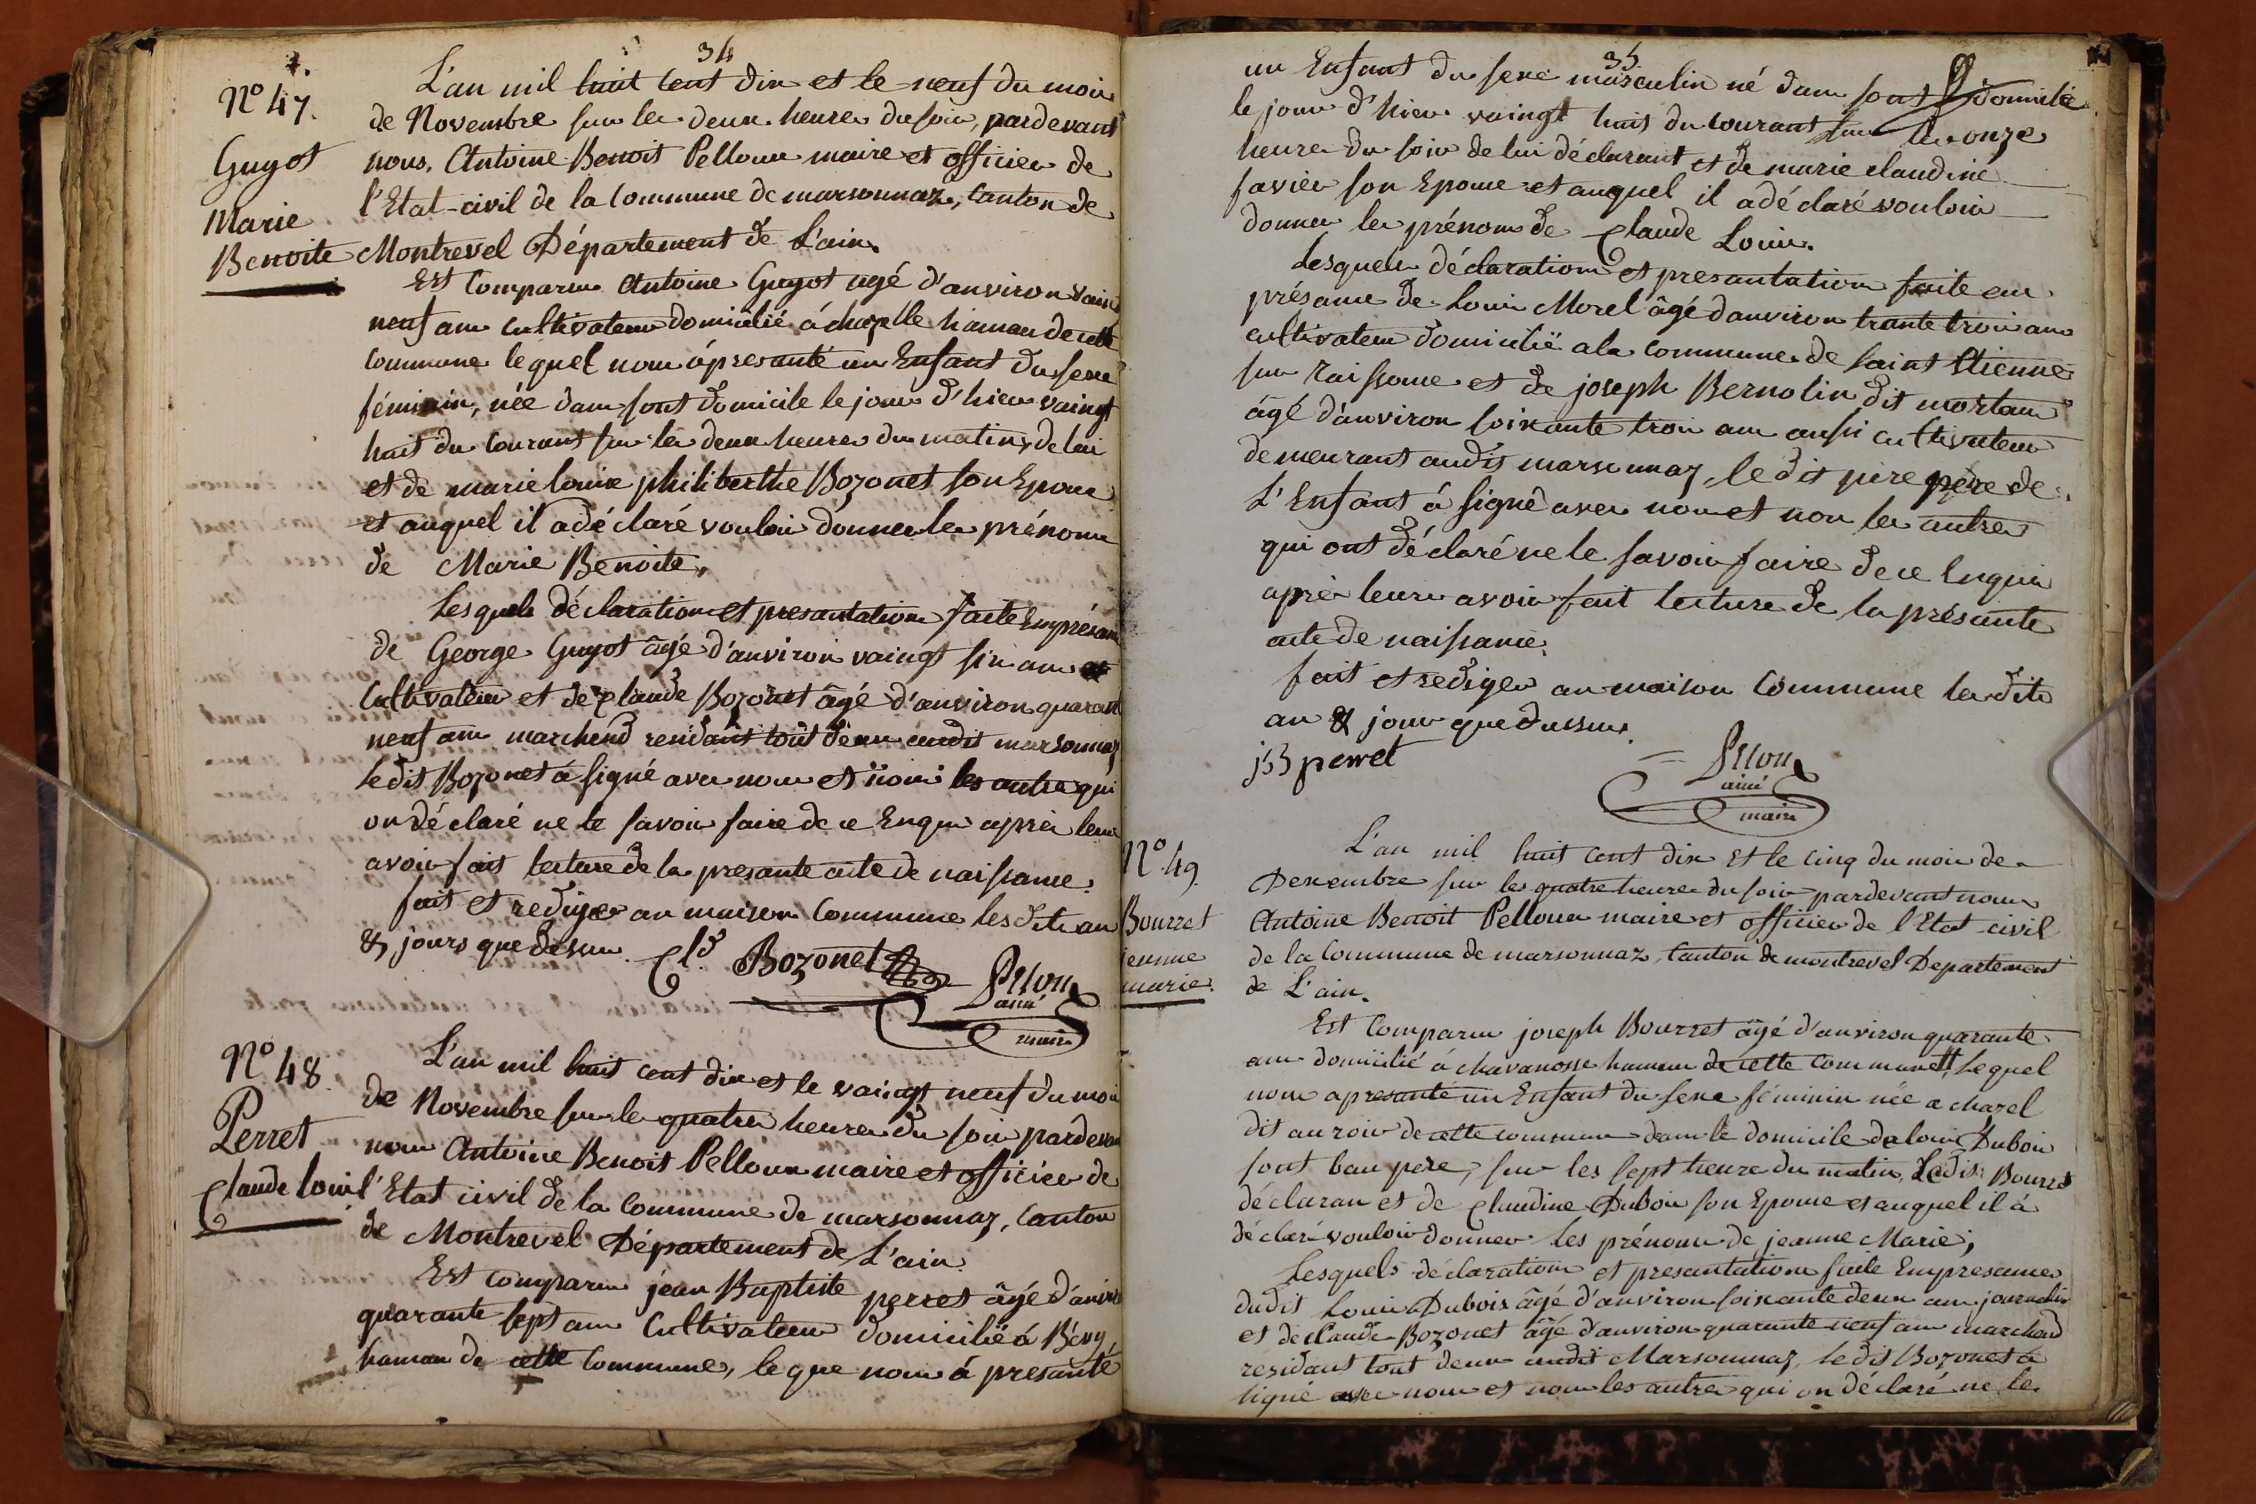 34
N° 47.
Guyot
Marie
Benoite
L'an mil huit cent dix et le neuf du mois
de Novembre sur les deux heures du soir, pardevant
nous, Antoine Benoit Pelloux maire et officier de
l'Etat-civil de la Commune de marsonnaz, Canton de
Montrevel Département de L'ain.
Est Comparus Antoine Guyot agé d'anviron vain
neuf ans cultivateur domicilié á chapelle hameau de cette
commune lequel nous á presanté un Enfant du sexe
féminin, née dans sont domicile le jour d'hier vaingt
huit du courant sur les deux heures du matin, de lui
et de marie louise philiberthe Bozonet son Epouse
et auquel il a déclaré vouloir donner les prénoms
de Marie Benoite,
Lesquels déclaration et presantation faite En présan
de George Guyot âgé d'anviron vaingt six ans et
Cultivateur et de Claude Bozonet âgé d'anviron quarant
neuf ans marchend residant tout deux audit marsonnaz
ledit Bozonet á signé avec nous et non les autre qui
on déclaré ne le savoir faire de ce Enquis après leurs
avoir fait lecture de la presante acte de naissance.
fait et rediger an maison Commune les dits an
& jours que dessus. Cld Bozonet
Pelloux
ainé
maire
N° 48
Perret
Claude louis
L'an mil huit cent dix et le vaingt neuf du mois
de Novembre sur le quatre heures du soir pardevan
nous Antoine Benoit Pelloux maire et officier de
l'Etat civil de la Commune de marsonnaz, Canton
de Montrevel Département de L'ain.
Est comparus jean Baptiste perret âgé d'anviro
quarante sept ans Cultivateur domicilié á Béng
hamau de cette Commune, le que nous á presanté
35
un Enfant du sexe masculin né dans sont domicile
le jour d'hier vaingt huit du courant sur les onze
heure du soir de lui déclarant et de marie claudine
favier son Epouse et auquel il a déclaré vouloir
donner les prénoms de Claude Louis.
Lesquels déclaration et presantation faite en
présance de Louis Morel âgé d'anviron trante trois ans
cultivateur domicilié a la commune de saint Etienne
sur raissouse et de joseph Bernolin dit mortam
âgé d'anviron soixante trois ans aussi cultivateur
demeurant audit marsonnaz, le dit pere père de
L'Enfant á signé avec nous et non les autres
qui ont déclaré ne le savoir faire de ce Enquis
après leurs avoir fait lecture de la présante
acte de naissance.
fait et rediger an maison Commune les dits
an & jour que dussus.
j b perret
Pelloux
ainé
maire
N° 49.
Bourret
jeanne
marie.
L'an mil huit cent dix et le cinq du mois de
Dexembre sur les quatre heure du soir pardevant nous
Antoine Benoit Pelloux maire et officier de l'Etat-civil
de la Commune de marsonnaz, Canton de montrevel Departement
de L'ain.
Est Comparus joseph Bourret âgé d'anviron quarante
ans domicilié á chavanosse hameau de cette commune, Lequel
nous a presanté un Enfant du sexe féminin née a charel
dit au roir de cette commune dans le domicile de louis Dubois
sont bau pere, sur les sept heure du matin, Ledit Bourret
déclaran et de Claudine Dubois son Epouse et auquel il á
déclaré vouloir donner les prénoms de jeanne Marie;
Lesquels déclaration et presantation faite Enpresance
dudit Louis Dubois âgé d'anviron soixante deux ans journalier
et de Claude Bozonet âgé d'anviron quarante neuf ans marchand
residant tout deux audit Marsonnaz, ledit Bozonet á
signé avec nous et non les autre qui on déclaré ne le